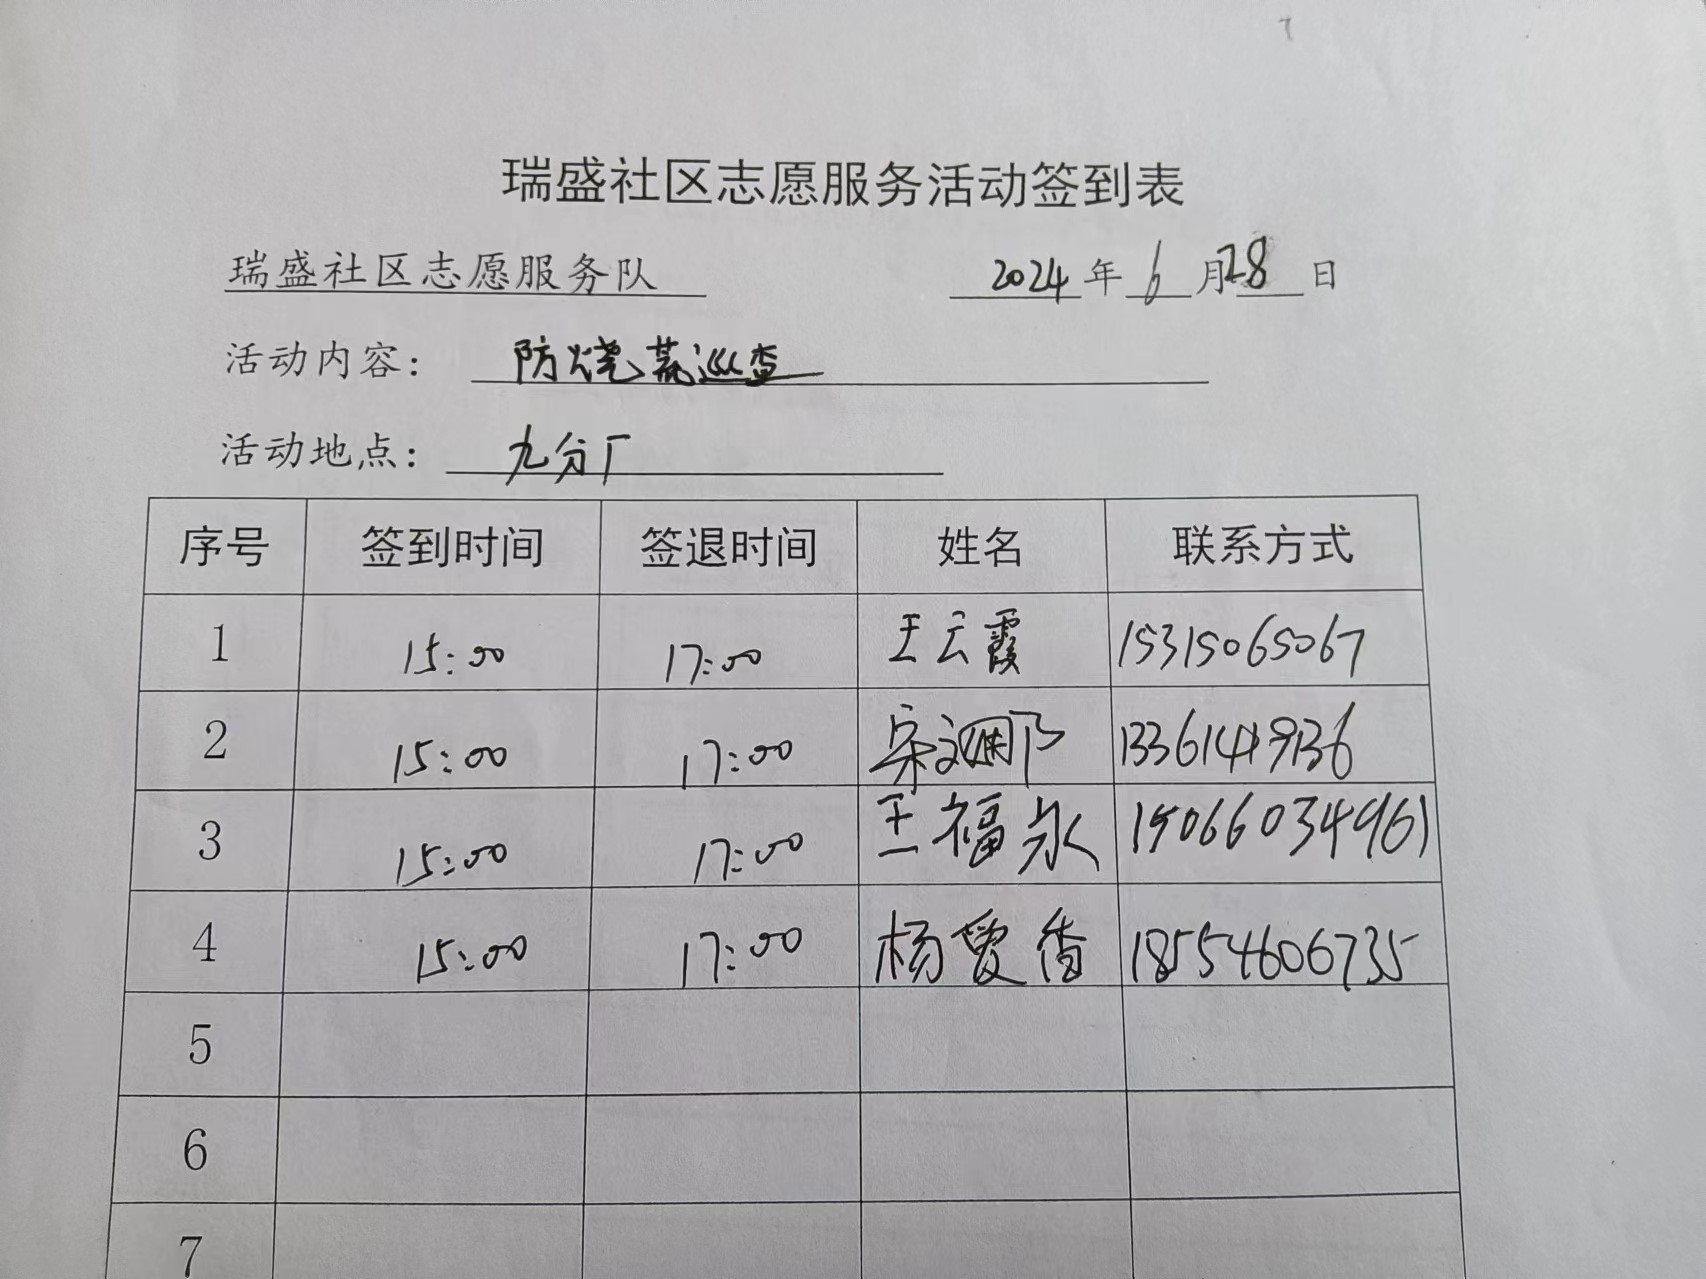 瑞盛社区志愿服务活动签到表
瑞盛社区志愿服务队 2024年6月28日
活动内容: 防烧荒巡查
活动地点: 九分厂
序号 签到时间 签退时间 姓名 联系方式
1 15:00 17:00 王云霞 15315065067
2 15:00 17:00 宋 13361449136
3 15:00 17:00 王福永 15066034961
4 15:00 17:00 杨爱香 18554606735
5
6
7